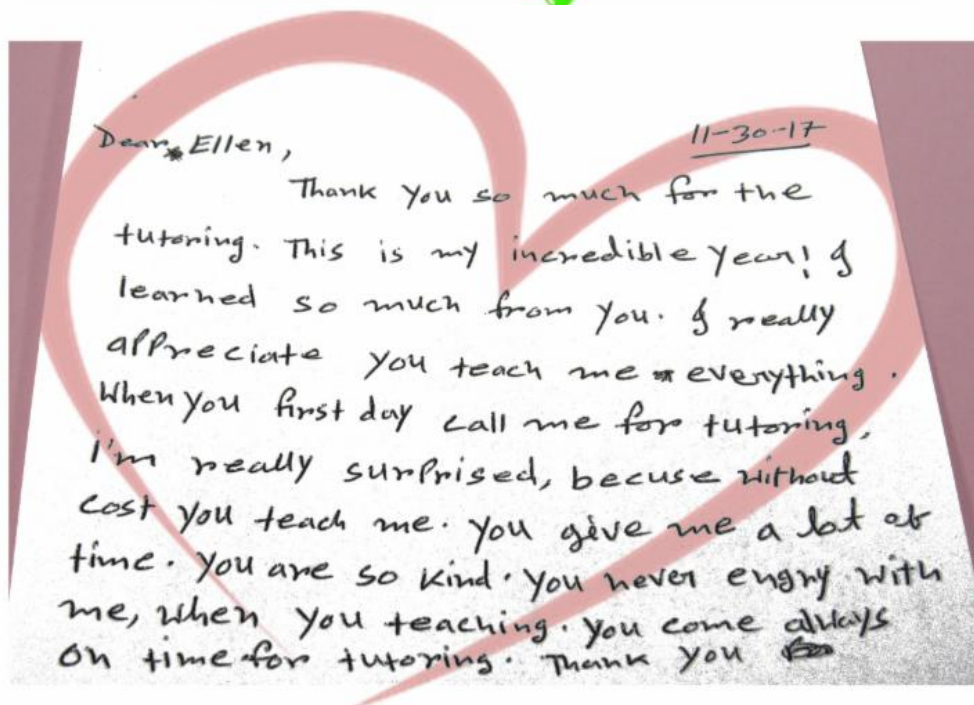 Dear Ellen,
11-30-17
Thank you so much for the
tutoring. This is my incredible year! I
learned so much from you. I really
appreciate you teach me everything.
When you first day call me for tutoring,
i'm really surprised, becuse without
cost you teach me. you give me a lot of
time. you are so kind. you never engry with
me, when you teaching. you come always
on time for tutoring. Thank you